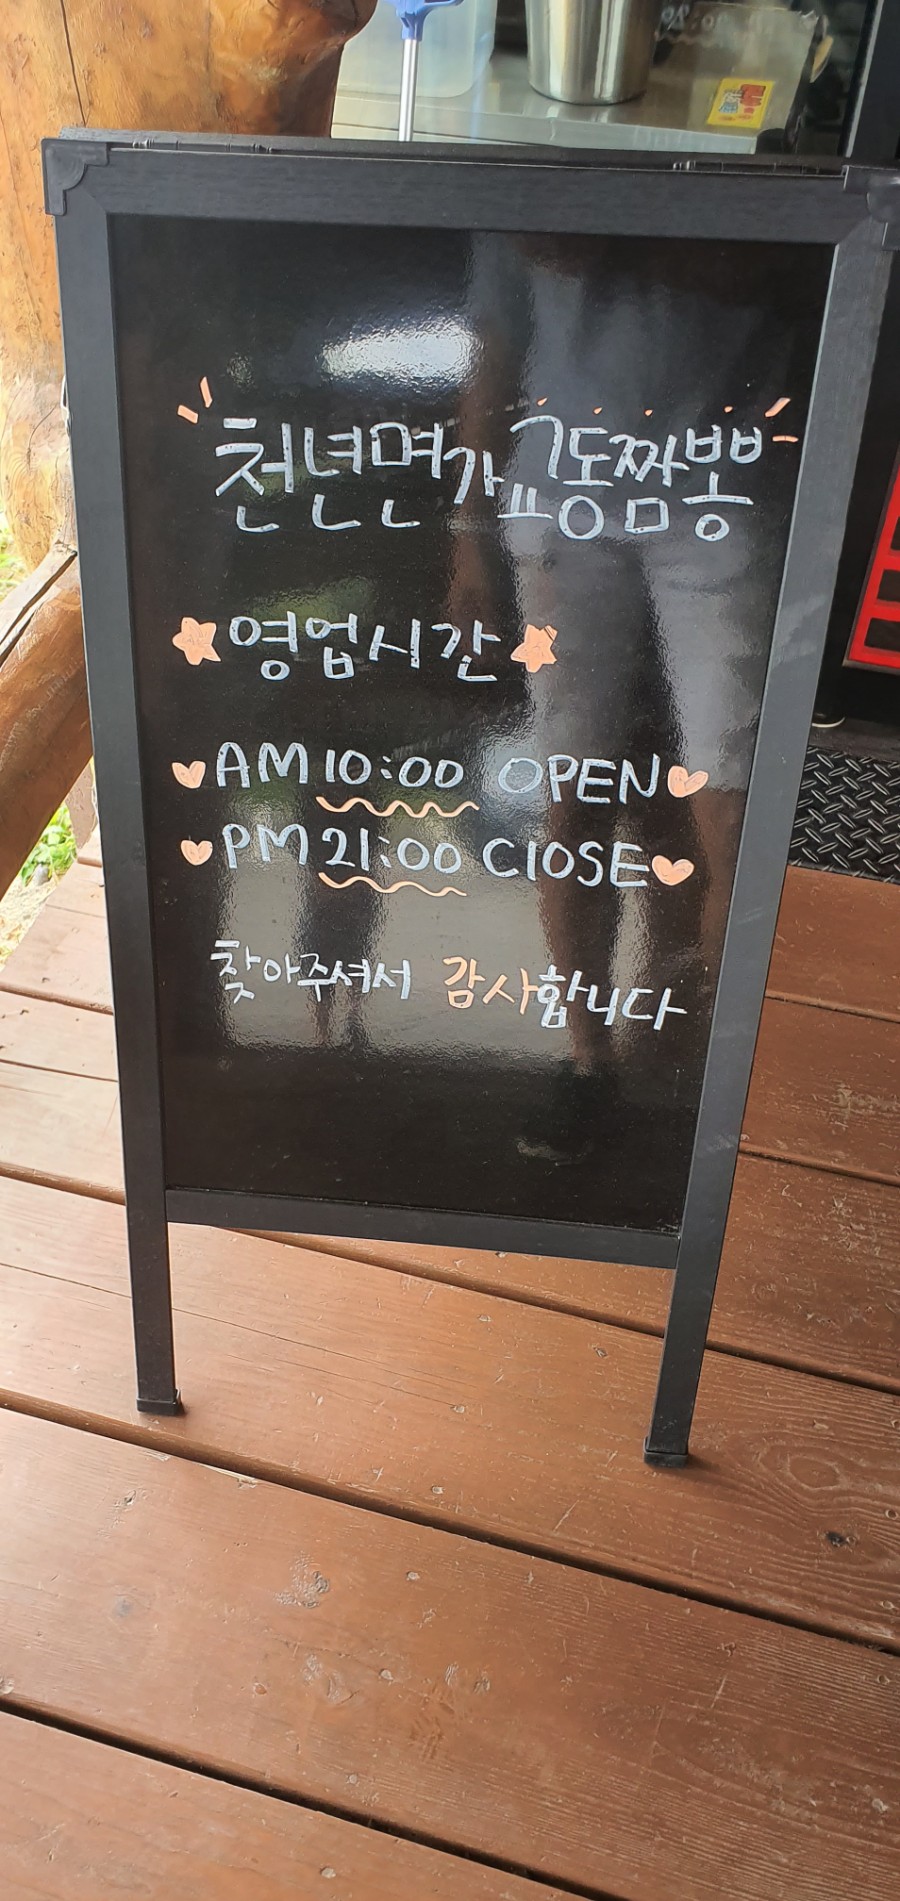 천년면가 교동짬뽕
영업시간
AM 10:00 OPEN
PM 21:00 ClOSE
찾아주셔서 감사합니다